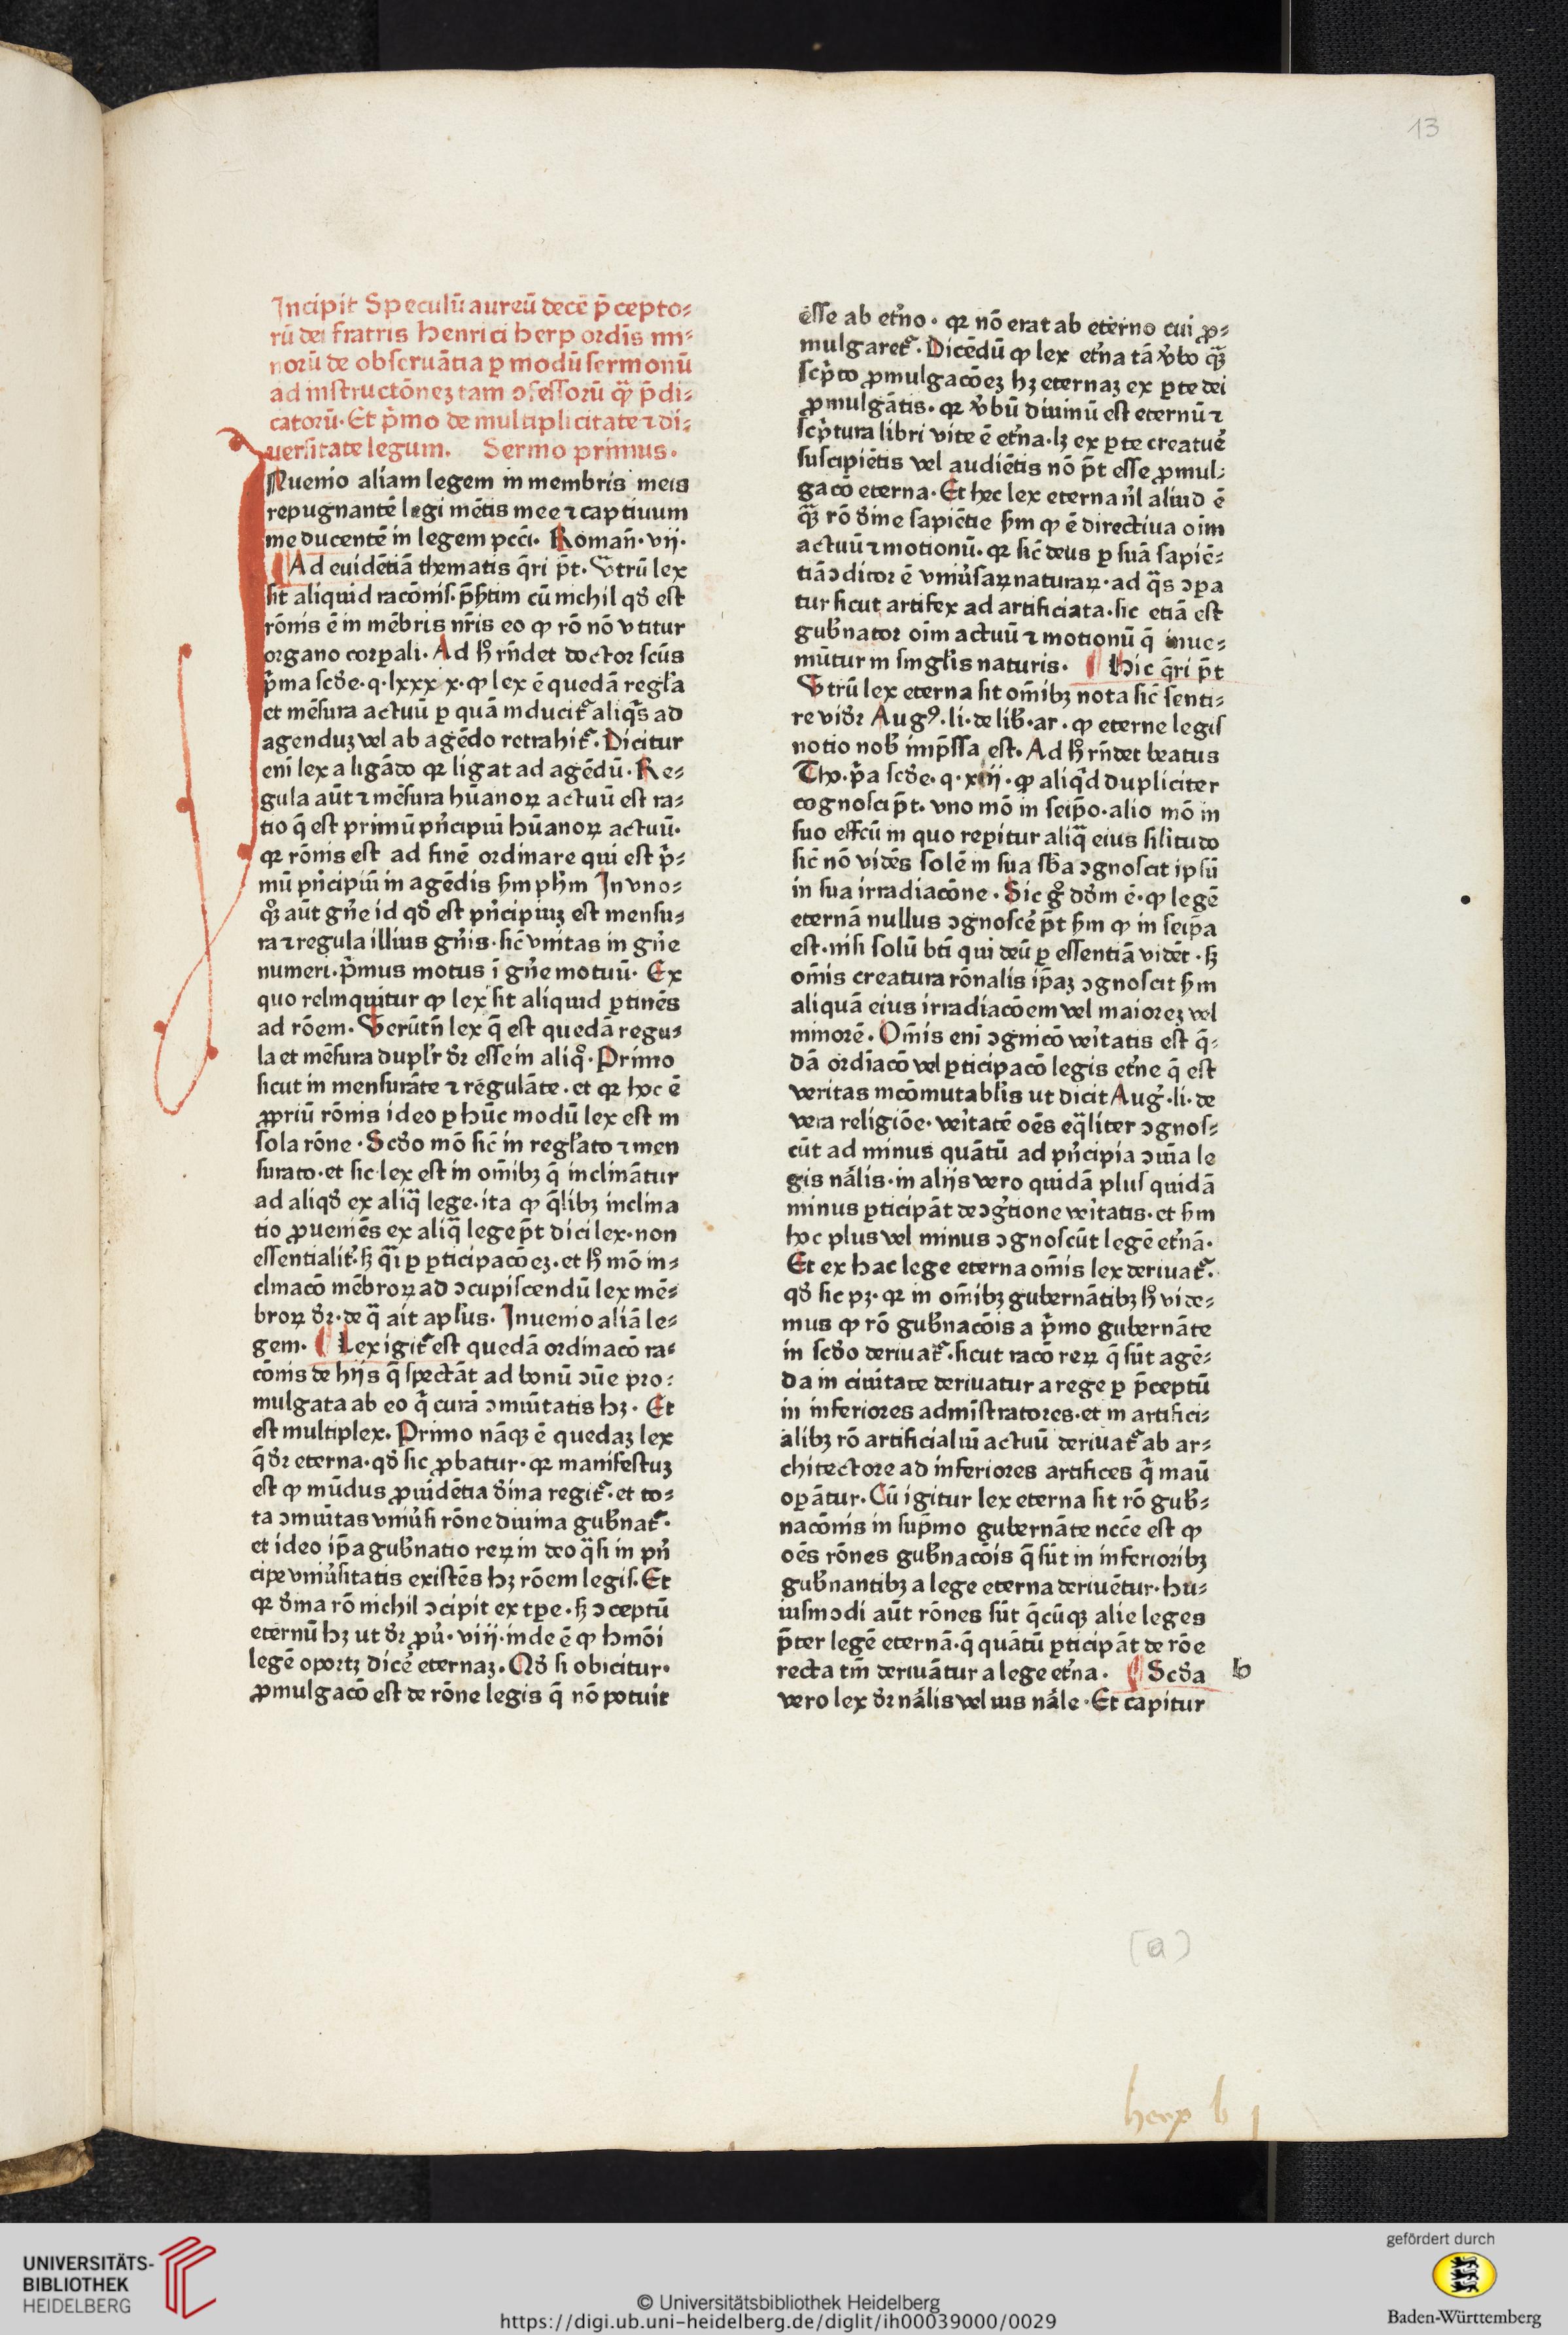 13
Incipit Speculū aureū decē p̄cepto⸗
rū dei fratris Henrici herp ordīs mi⸗
norū de obseruātia ꝑ modū sermonū
ad instructōnez tam ↄfessorū qͣꝫ p̄di⸗
catorū. Et pͥmo de multiplicitate ⁊ di⸗
uersitate legum. Sermo primus.
INuenio aliam legem in membris meis
repugnantē legi mētis mee ⁊ captiuum
me ducentē in legem pccī. Romañ. vij.
¶ Ad euidētiā thematis q̄ri p̄t. Vtrū lex
sit aliquid racōnis. p̄sertim cū nichil qd̓ est
rōnis ē in mēbris nr̄is eo ꝙ rō nō vtitur
organo corꝑali. Ad hͦ rn̄det doctor scūs
pͥma scd̓e. q. lxxxx. ꝙ lex ē quedā regl̓a
et mēsura actuū ꝑ quā inducit᷑ aliqͥs ad
agenduꝫ vel ab agēdo retrahit᷑. Dicitur
enī lex a ligādo qꝛ ligat ad agēdū. Re⸗
gula aūt ⁊ mēsura hūanoꝝ actuū est ra⸗
tio q̄ est primū pn̄cipiū hūanoꝝ actuū.
qꝛ rōnis est ad finē ordinare qui est pͥ⸗
mū pn̄cipiū in agēdis sm̄ ph̄m In vno⸗
qͦꝫ aūt gn̄e id qd̓ est pn̄cipiuꝫ est mensu⸗
ra ⁊ regula illius gn̄is. sic̄ vnitas in gn̄e
numeri. pͥmus motus ī gn̄e motuū. Ex
quo relinquitur ꝙ lex sit aliquid ꝑtinēs
ad rōem. Verūtn̄ lex q̄ est quedā regu⸗
la et mēsura dupl̓r dr̄ esse in aliqͦ. Primo
sicut in mensurāte ⁊ regulāte. et qꝛ hoc ē
ꝓpriū rōnis ideo ꝑ hūc modū lex est in
sola rōne. Scd̓o mō sic̄ in regl̓ato ⁊ men
surato. et sic lex est in om̄ibꝫ q̄ inclināntur
ad aliqd̓ ex aliqͣ lege. ita ꝙ q̄libꝫ inclina
tio ꝓueniēs ex aliqͣ lege p̄t dici lex. non
essentialit̓. sꝫ qͣi ꝑ ꝑticipacōeꝫ. et hͦ mō in⸗
clinacō mēbroꝝ ad ↄcupiscendū lex mē⸗
broꝝ dr̄. de qͣ ait apl̓us. Inuenio aliā le⸗
gem. ¶ Lex igit᷑ est quedā ordinacō ra⸗
cōnis de hijs q̄ spectāt ad bonū ↄūe pro⸗
mulgata ab eo qͥ curā ↄmunitatis hꝫ. Et
est multiplex. Primo nāqꝫ ē quedaꝫ lex
q̄ dr̄ eterna. qd̓ sic ꝓbatur. qꝛ manifestuꝫ
est ꝙ mūdus ꝓuidētia d̓ina regit᷑. et to⸗
ta ↄmuītas vniu̓si rōne diuina gub̓nat᷑.
et ideo ip̄a gub̓natio reꝝ in deo qͣsi in pn̄
cipe vniu̓sitatis existēs hꝫ rōem legis. Et
qꝛ d̓ina rō nichil ↄcipit ex tꝑe. sꝫ ↄceptū
eternū hꝫ ut dr̄ ꝓu̓. viij. inde ē ꝙ hm̄ōi
legē oportꝫ dicē eternaꝫ. Qd̓ si obicitur.
ꝓmulgacō est de rōne legis q̄ nō potuit
esse ab et̓no. qꝛ nō erat ab eterno cui ꝓ⸗
mulgaret᷑. Dicēdū ꝙ lex et̓na tā v̓bo qͣꝫ
scp̄to ꝓmulgacōeꝫ hꝫ eternaꝫ ex ꝑte dei
ꝓmulgātis. qꝛ v̓bū diuinū est eternū ⁊
scp̄tura libri vite ē et̓na. sꝫ ex ꝑte creatur̓
suscipiētis vel audiētis nō p̄t esse ꝓmul⸗
gacō eterna. Et hec lex eterna nl̓ aliud ē
qͣꝫ rō d̓ine sapiētie sm̄ ꝙ ē directiua oīm
actuū ⁊ motionū. qꝛ sic̄ deus ꝑ suā sapiē⸗
tiā ↄditor ē vniu̓saꝝ naturaꝝ. ad qͣs ↄꝑa
tur sicut artifex ad artificiata. sic etiā est
gub̓nator oīm actuū ⁊ motionū q̄ inue⸗
niūtur in singl̓is naturis. ¶ Hic q̄ri p̄t
Vtrū lex eterna sit om̄ibꝫ nota sic̄ senti⸗
re vidr̄ Augꝰ. li. de lib̓. ar. ꝙ eterne legis
notio nob̓ imp̄ssa est. Ad hͦ rn̄det beatus
Tho. pͥa scd̓e. q. xiij. ꝙ aliqͥd dupliciter
cognosci p̄t. vno mō in seip̄o. alio mō in
suo effcū in quo reꝑitur aliqͣ eius silitudo
sic̄ nō vidēs solē in sua sb̓a ↄgnoscit ipsū
in sua irradiacōne. Sic gͦ dd̓m ē. ꝙ legē
eternā nullus ↄgnoscē p̄t sm̄ ꝙ in seip̄a
est. nisi solū bt̄i qui deū ꝑ essentiā vidēt. sꝫ
om̄is creatura rōnalis ip̄aꝫ ↄgnoscit sm̄
aliquā eius irradiacōem vel maioreꝫ vel
minorē. Om̄is enī ↄgnicō veri̓tatis est q̄⸗
dā ordīacō vel ꝑticipacō legis et̓ne q̄ est
veritas incōmutabl̓is ut dicit Aug̓. li. de
vera religiōe. veri̓tatē oēs eqͣliter ↄgnos⸗
cūt ad minus quātū ad pn̄cipia ↄmūa le
gis nāl̓is. in alijs vero quidā plus quidā
minus ꝑticipāt de ↄgͥtione veri̓tatis. et sm̄
hoc plus vel minus ↄgnoscūt legē et̓nā.
Et ex hac lege eterna om̄is lex deriuat᷑.
qd̓ sic pꝫ. qꝛ in om̄ibꝫ gubernātibꝫ hͦ vide⸗
mus ꝙ rō gub̓nacōis a pͥmo gubernāte
in scd̓o deriuat᷑. sicut racō reꝝ q̄ sūt agē⸗
da in ciuitate deriuatur a rege ꝑ p̄ceptū
in inferiores admīstratores. et in artifici⸗
alibꝫ rō artificialiū actuū deriuat᷑ ab ar⸗
chitectore ad inferiores artifices qͥ manū
oꝑātur. Cū igitur lex eterna sit rō gub̓⸗
nacōnis in sup̄mo gubernāte ncc̄e est ꝙ
oēs rōnes gub̓nacōis q̄ sūt in inferioribꝫ
gub̓nantibꝫ a lege eterna deriuētur. hu⸗
iusmodi aūt rōnes sūt q̄cūqꝫ alie leges
p̄ter legē eternā. q̄ quātū ꝑticipāt de rōe
recta tm̄ deriuātur a lege et̓na. ¶ Scd̓a
vero lex dr̄ nāl̓is vel ius nāl̓e. Et capitur
b
(a)
herp b j
UNIVERSITÄTS-
BIBLIOTHEK
HEIDELBERG
© Universitätsbibliothek Heidelberg
https://digi.ub.uni-heidelberg.de/diglit/ih00039000/0029
gefördert durch
Baden-Württemberg